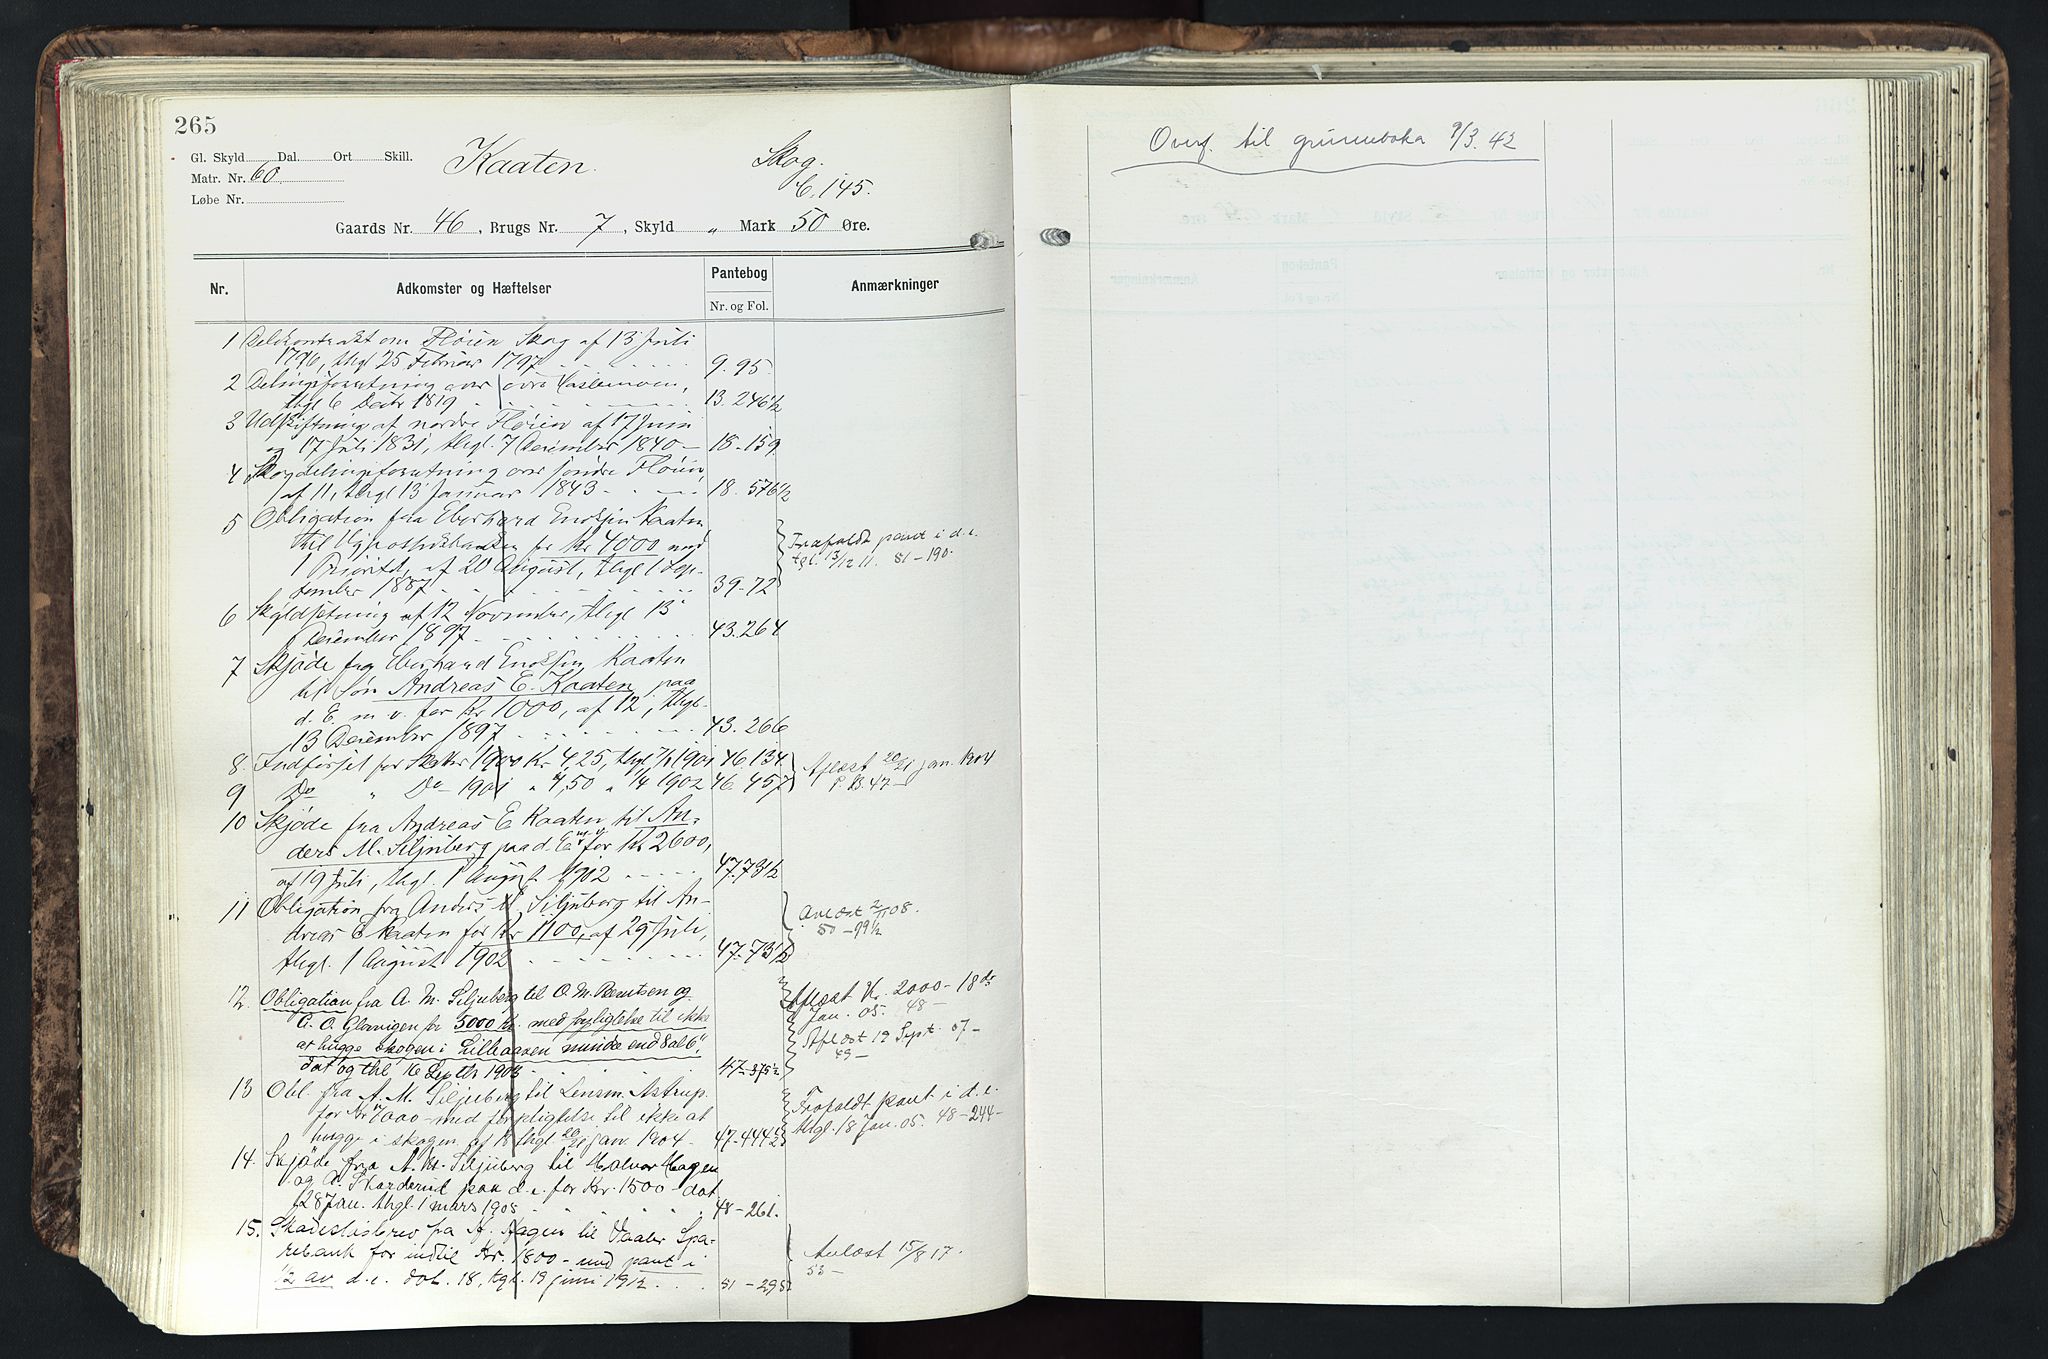 265
Gl. Skyld Dal. Ort Skill.
Matr. Nr. 60
Løbe Nr.
Kaaten.
Skog.
C. 145.
Gaards Nr. 46, Brugs Nr. 7, Skyld „ Mark 50 Øre.
Nr. Adkomster og Hæftelser Pantebog Nr. og Fol. Anmærkninger
1 Delekontrakt om Fløien Skog af 13 Juli
1796, thgl 25 Februar 1797 9. 95
2 Delingsforretning over øvre Haslemoen,
thgl 6 Decbr 1819 13. 246½
3 Udskiftning af nordre Fløien af 17 Juni
og 17 Juli 1831, thgl. 7 December 1840 — 18 - 159
4 Skogdelingsforretning over søndre Fløien,
af 11, thgl 13 Januar 1843 18. 576½
5 Obligation fra Eberhard Enoksen Kaaten
til Hypothekbanken for Kr 4000 med
1 Prioritet, af 20 August, thgl 1 Sep-
tember 1887 39-72
Frafaldt pant i d. e.
tgl. 13/12 11. 81-190.
6 Skyldsetning af 12 November, thgl 13
December 1897 43. 264
7 Skjøde fra Eberhard Enoksen Kaaten
til søn Andreas E. Kaaten paa
d. E. m v. for Kr 1000, af 12, thgl.
13 December 1897 43. 266
8. Indførsel for skatter 1900 Kr 4,25, thgl 1901 46 134
9 Do „ Do 1901 „ 4,50 „ 1/4 1902 46. 457
Aflæst 20/21 jan. 1904
P. B. 47-
10 Skjøde fra Andreas E Kaaten til An-
ders M. Siljuberg paa d. E. m. v. for Kr 2600,
af 19 Juli, thgl. 1 August 1902 47.731½
11 Obligation fra Anders M. Siljuberg til An-
dreas E Kaaten for Kr 1100, af 29 Juli,
thgl. 1 August 1902 47-73½
Avlæst 2/11 08.
50 - 99½
12. Obligation fra A. M. Siljuberg til O. M. Berntsen og
A. O. Glavigen for 5000 Kr. med forpligtelse til ikke
at hugge skogen i Lilleaasen mindre end 8 al 6",
dat og thl 16 Septbr 1903 47-375½
Aflæst Kr. 2000 - 18 ds
Jan. 05. 48-
Aflæst 19 Sept. 07-
49-
13 Obl. fra A. M. Siljuberg til Lensm. Astrup
for Kr 4000 - med forpligtelse til ikke at
hugge i skogen af 18 thgl 20/21 jan. 1904. 47-444½
Frafaldt pant i d. e.
thgl. 18 Jan. 05. 48-244-
14. Skjøde fra A. M. Siljuberg til Halvor Hagen
og A. Skarderud paa d. e. for Kr. 1500 - dat
28 Jan. thgl. 1 mars 1905 48-261.
15. Skadesløsbrev fra H. Hagen til Vaaler Spa-
rebank for indtil Kr. 1800 - med pant i
½ av d. e. dat. 18, tgl. 19 juni 1912. 51-295
Avlæst 15/8 17.
53-
Overf. til grunnboka 9/3. 42